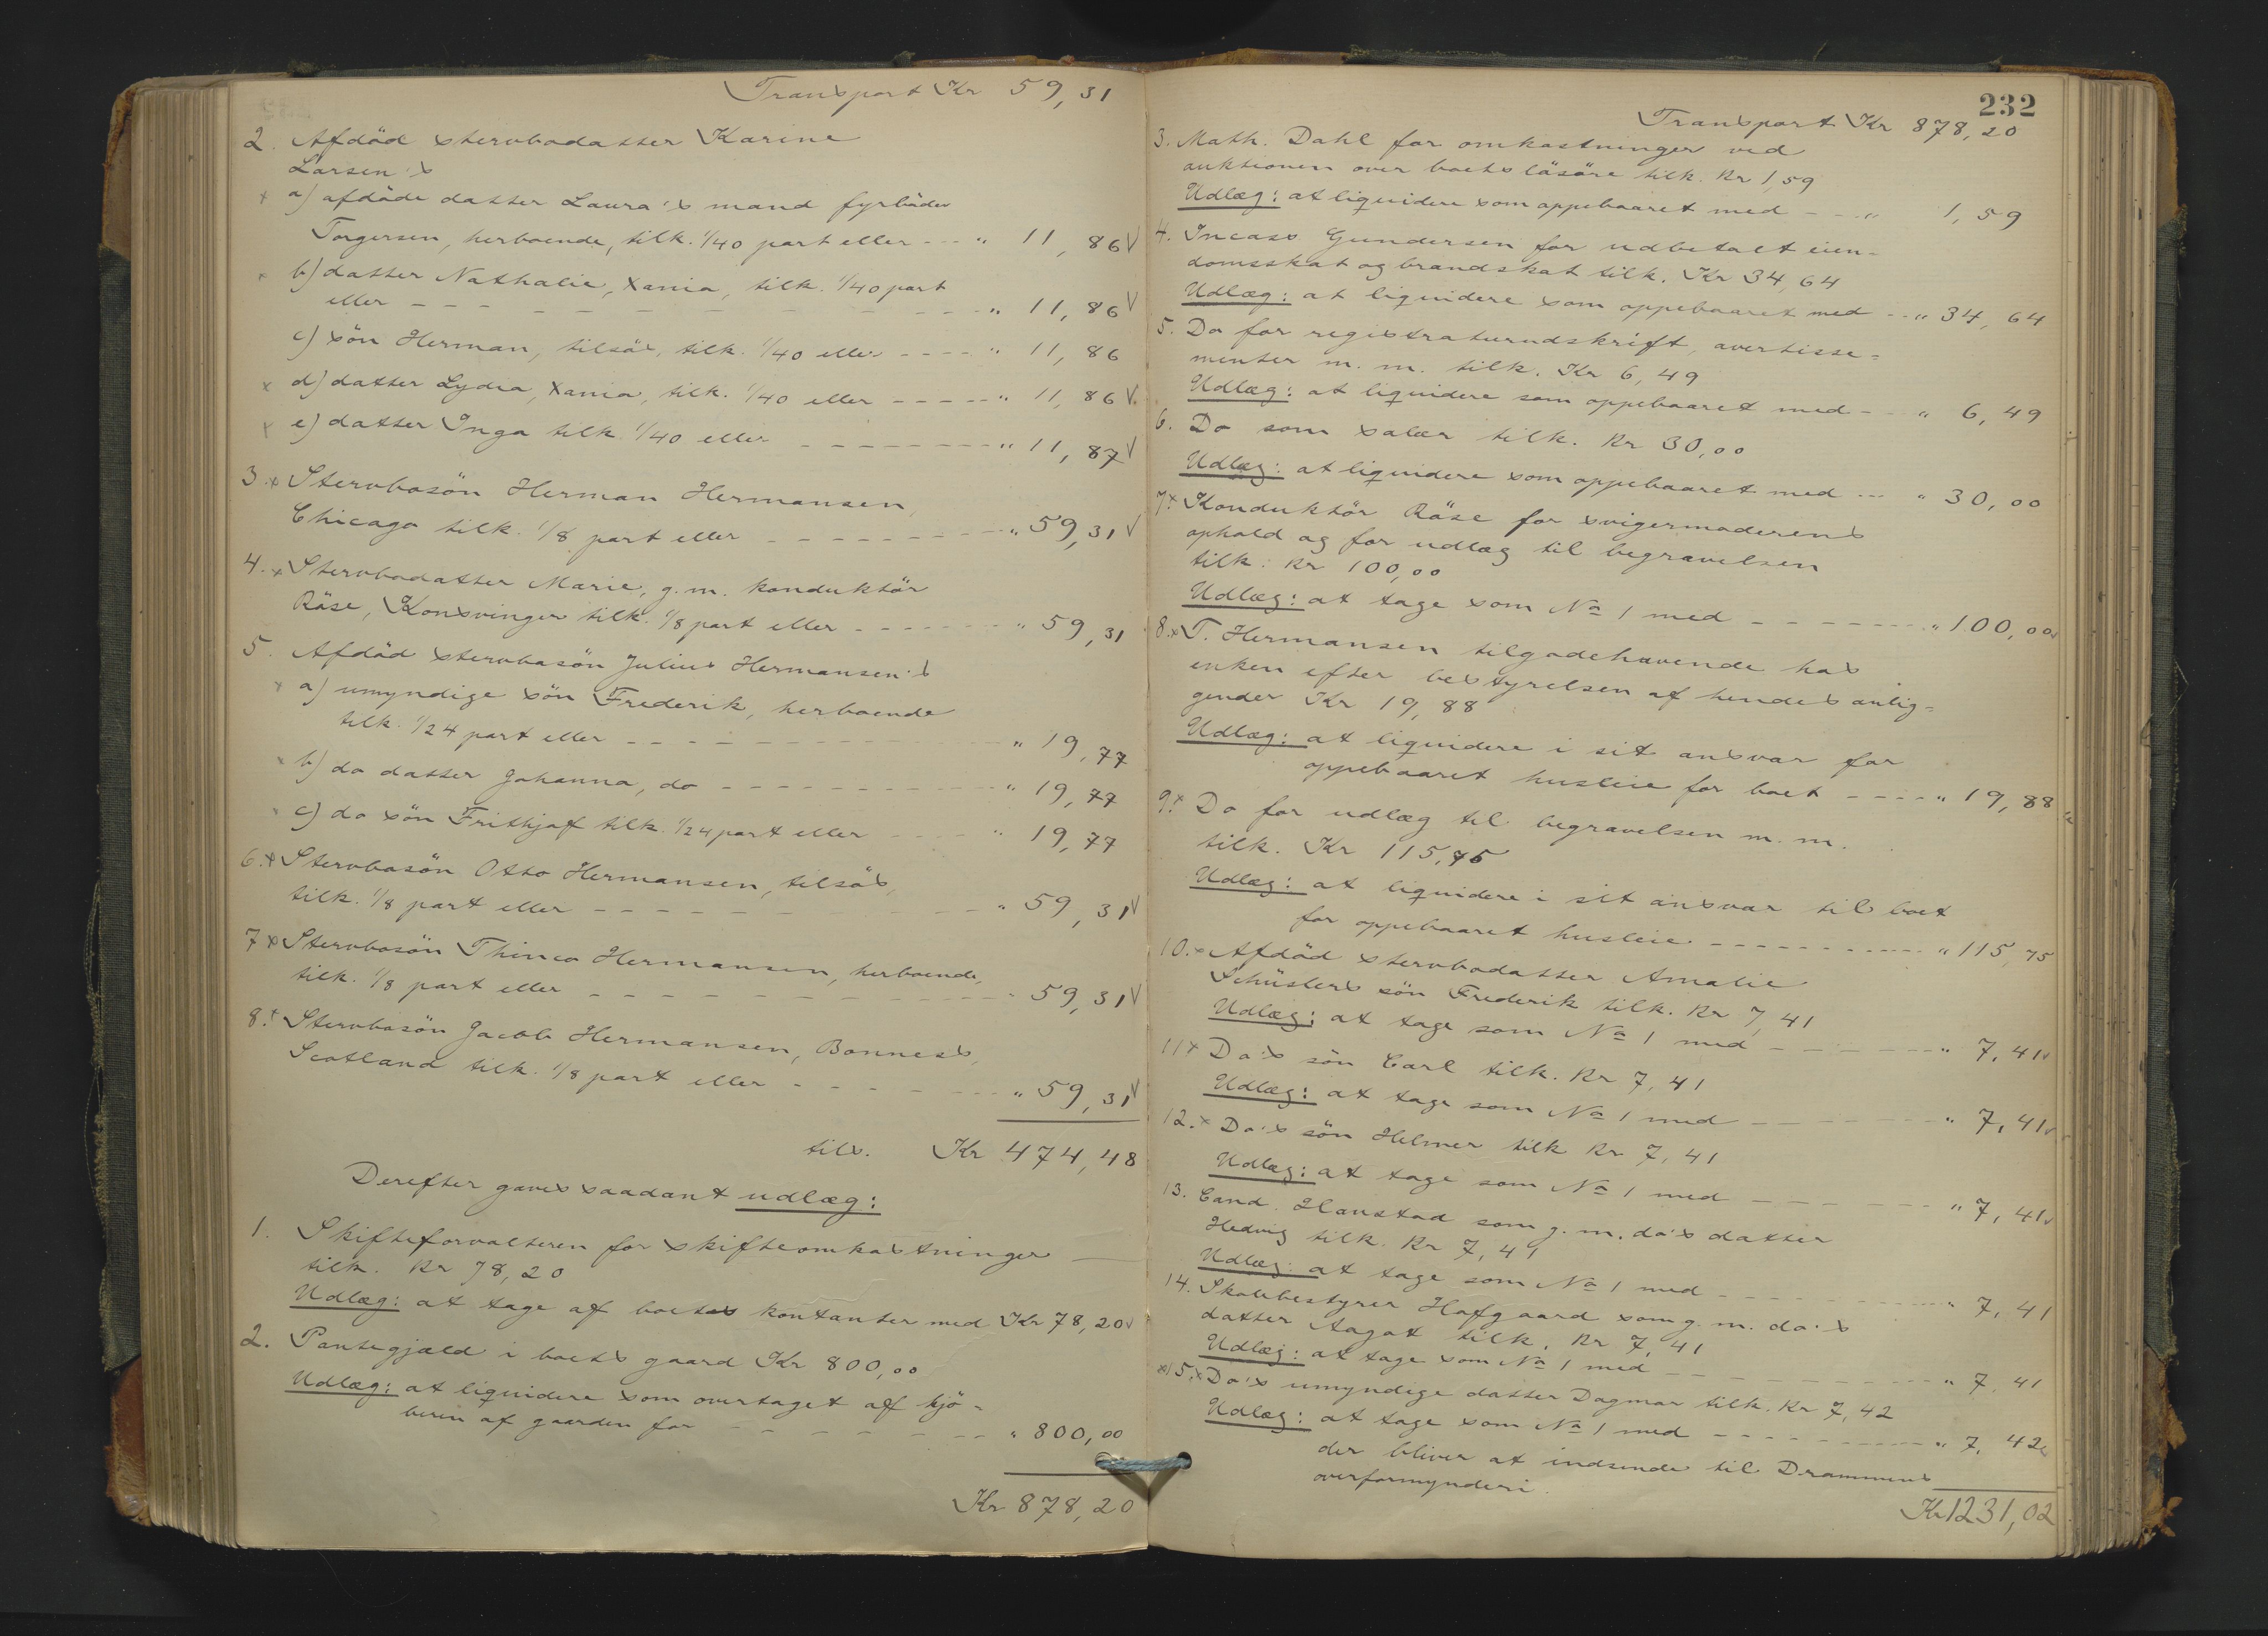 Transport Kr 59,31
2. Afdöd stervbodatter Karine
Larsen's
x a) afdöde datter Laura's mand fyrböder
Torgersen, herboende, tilk. 1/40 part eller - - - " 11,86 √
x b) datter Nathalie, Xania, tilk. 1/40 part
eller - - - - - - - - - - " 11,86 √
c) sön Herman, tilsös, tilk. 1/40 eller - - - - " 11,86
x d) datter Lydia, Xania, tilk. 1/40 eller - - - - - " 11,86 √
x e) datter Inga tilk. 1/40 eller - - - - - - - - " 11,87 √
3. x Stervbosön Herman Hermansen,
Chicago tilk. 1/8 part eller - - - - - - - - - " 59,31 √
4. x Stervbodatter Marie, g. m. konduktör
Röse, Konsvinger tilk. 1/8 part eller - - - - - - - " 59,31
5. Afdöd stervbosön Julius Hermansen's
x a) umyndige sön Frederik, herboende
tilk. 1/24 part eller - - - - - - - - - - - - " 19,77
x b) do datter Johanna, do - - - - - - - - - - " 19,77
x c) do sön Frithjof tilk. 1/24 part eller - - - - " 19,77
6. x Stervbosön Otto Hermansen, tilsös,
tilk. 1/8 part eller - - - - - - - - - - - - " 59,31 √
7 x Stervbosön Thinco Hermansen, herboende,
tilk. 1/8 part eller - - - - - - - - - - - - " 59,31 √
8. x Stervbosön Jacob Hermansen, Bonness,
Scotland tilk. 1/8 part eller - - - - - - - " 59,31 √
tils. Kr 474,48
Derefter gaves saadant udlæg:
1. Skifteforvalteren for skifteomkostninger
tilk. Kr 78,20
Udlæg: at tage af boets kontanter med Kr 78,20 √
2. Pantegjæld i boets gaard Kr 800,00
Udlæg: at liquidere som overtaget af kjö-
beren af gaarden for - - - - - - - - " 800,00
Kr 878,20
232
Transport Kr 878,20
3. Math. Dahl for omkostninger ved
auktionen over boets lösöre tilk. Kr 1,59
Udlæg: at liquidere som oppebaaret med - - - " 1,59
4. Incass. Gundersen for udbetalt eien-
domsskat og brandskat tilk. Kr 34,64
Udlæg: at liquidere som oppebaaret med - - " 34,64
5. Do for registraturudskrift, avertisse-
menter m. m. tilk. Kr 6,49
Udlæg: at liquidere som oppebaaret med - - - " 6,49
6. Do som salær tilk. Kr 30,00
Udlæg: at liquidere som oppebaaret med - - - " 30,00
7. x Konduktör Röse for svigermoderens
ophold og for udlæg til begravelsen
tilk. Kr 100,00
Udlæg: at tage som No 1 med - - - - - - - - " 100,00 √
8. x T. Hermansen tilgodehavende hos
enken efter bestyrelsen af hendes anlig-
gender Kr 19,88
Udlæg: at liquidere i sit ansvar for
oppebaaret husleie for boet - - - - " 19,88
9. x Do for udlæg til begravelsen m. m.
tilk. Kr 115,75
Udlæg: at liquidere i sit ansvar til boet
for oppebaaret husleie - - - - - - - - - - " 115,75
10. x Afdöd stervbodatter Amalie
Schüslers sön Frederik tilk. Kr 7,41
Udlæg: at tage som No 1 med - - - - - - - - " 7,41 √
11 x Do's sön Carl tilk. Kr 7,41
Udlæg: at tage som No 1 med - - - - - - - - " 7,41 √
12. x Do's sön Helmer tilk Kr 7,41
Udlæg: at tage som No 1 med - - - - - - - - " 7,41 √
13. Cand. Hanstad som g. m. do's datter
Hedvig tilk. Kr 7,41
Udlæg: at tage som No 1 med - - - - - - - - - " 7,41
14. Skolebestyrer Hofgaard som g. m. do's
datter Aagot tilk. Kr 7,41
Udlæg: at tage som No 1 med - - - - - - - - - " 7,41
x 15. x Do's umyndige datter Dagmar tilk. Kr 7,42
Udlæg: at tage som No 1 med - - - - - - - - - " 7,42 √
der bliver at indsende til Drammens
overformynderi.
Kr 1231,02